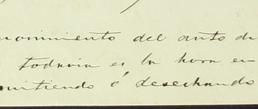 nocimiento del auto de
todavia es la hora en
mitiendo ó desechando